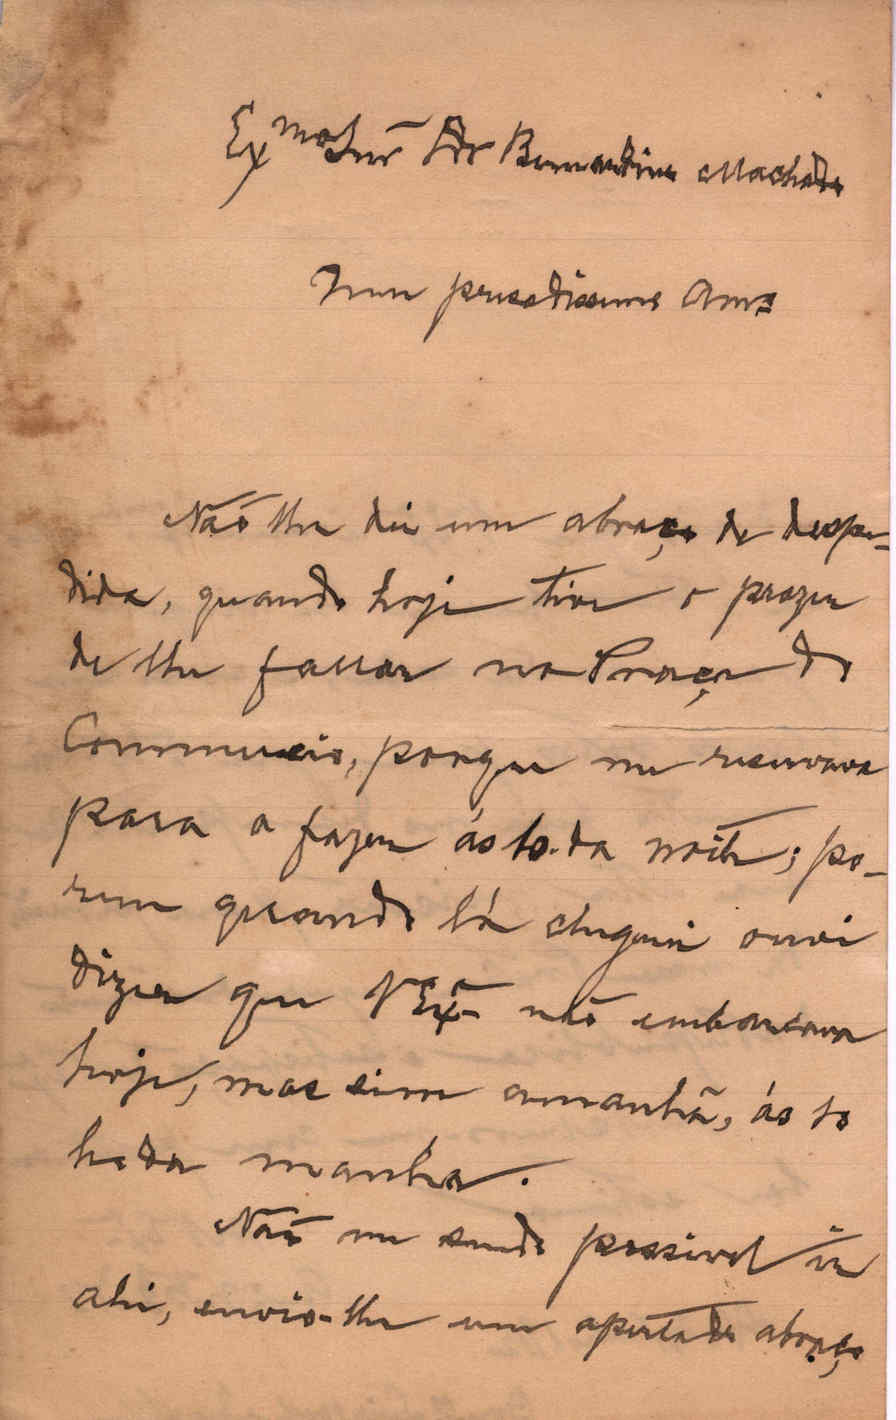 Exmo Snr Dr Bernardino Machado
Meu presadissimo Amo
Não lhe dei um abraço de despe-
dida, quando hoje tive o prazer
de lhe fallar na Praça do
Commercio, porque me reservava
para o fazer ás 10 da noite; po-
rem quando lá cheguei ouvi
dizer que V Exa não embarcava
hoje, mas sim amanhã, ás 10
h da manhã.
Não me sendo possivel ir
ahi, envio-lhe um apertado abraço